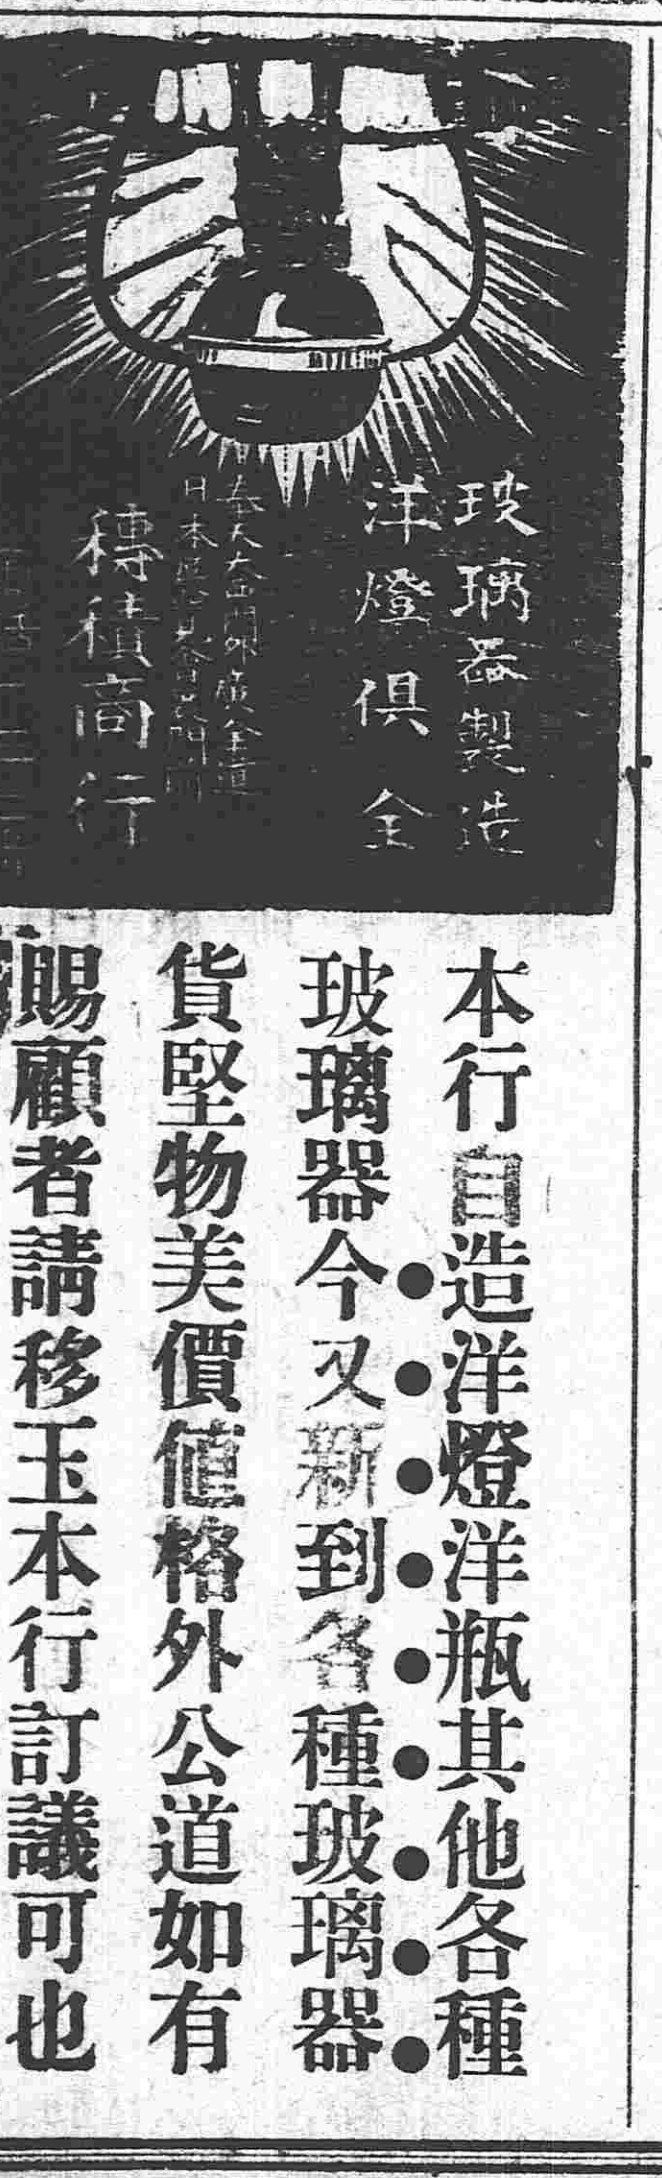 玻璃器製造
洋燈俱全
奉天大西門外
日本
積商行
本行自造洋燈洋瓶其他各種
玻璃器今又新到各種玻璃器
貨堅物美價値格外公道如有
賜顧者請移玉本行訂議可也